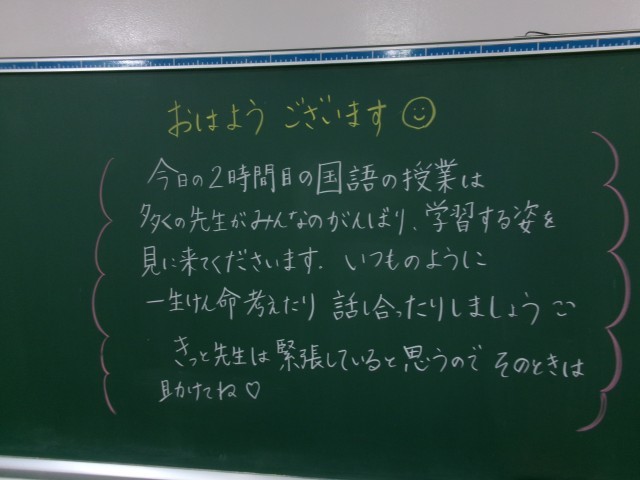 おはようございます
今日の2時間目の国語の授業は
多くの先生がみんなのがんばり、学習する姿を
見に来てくださいます. いつものように
一生けん命考えたり話し合ったりしましょう
きっと先生は緊張していると思うのでそのときは
助けてね♡